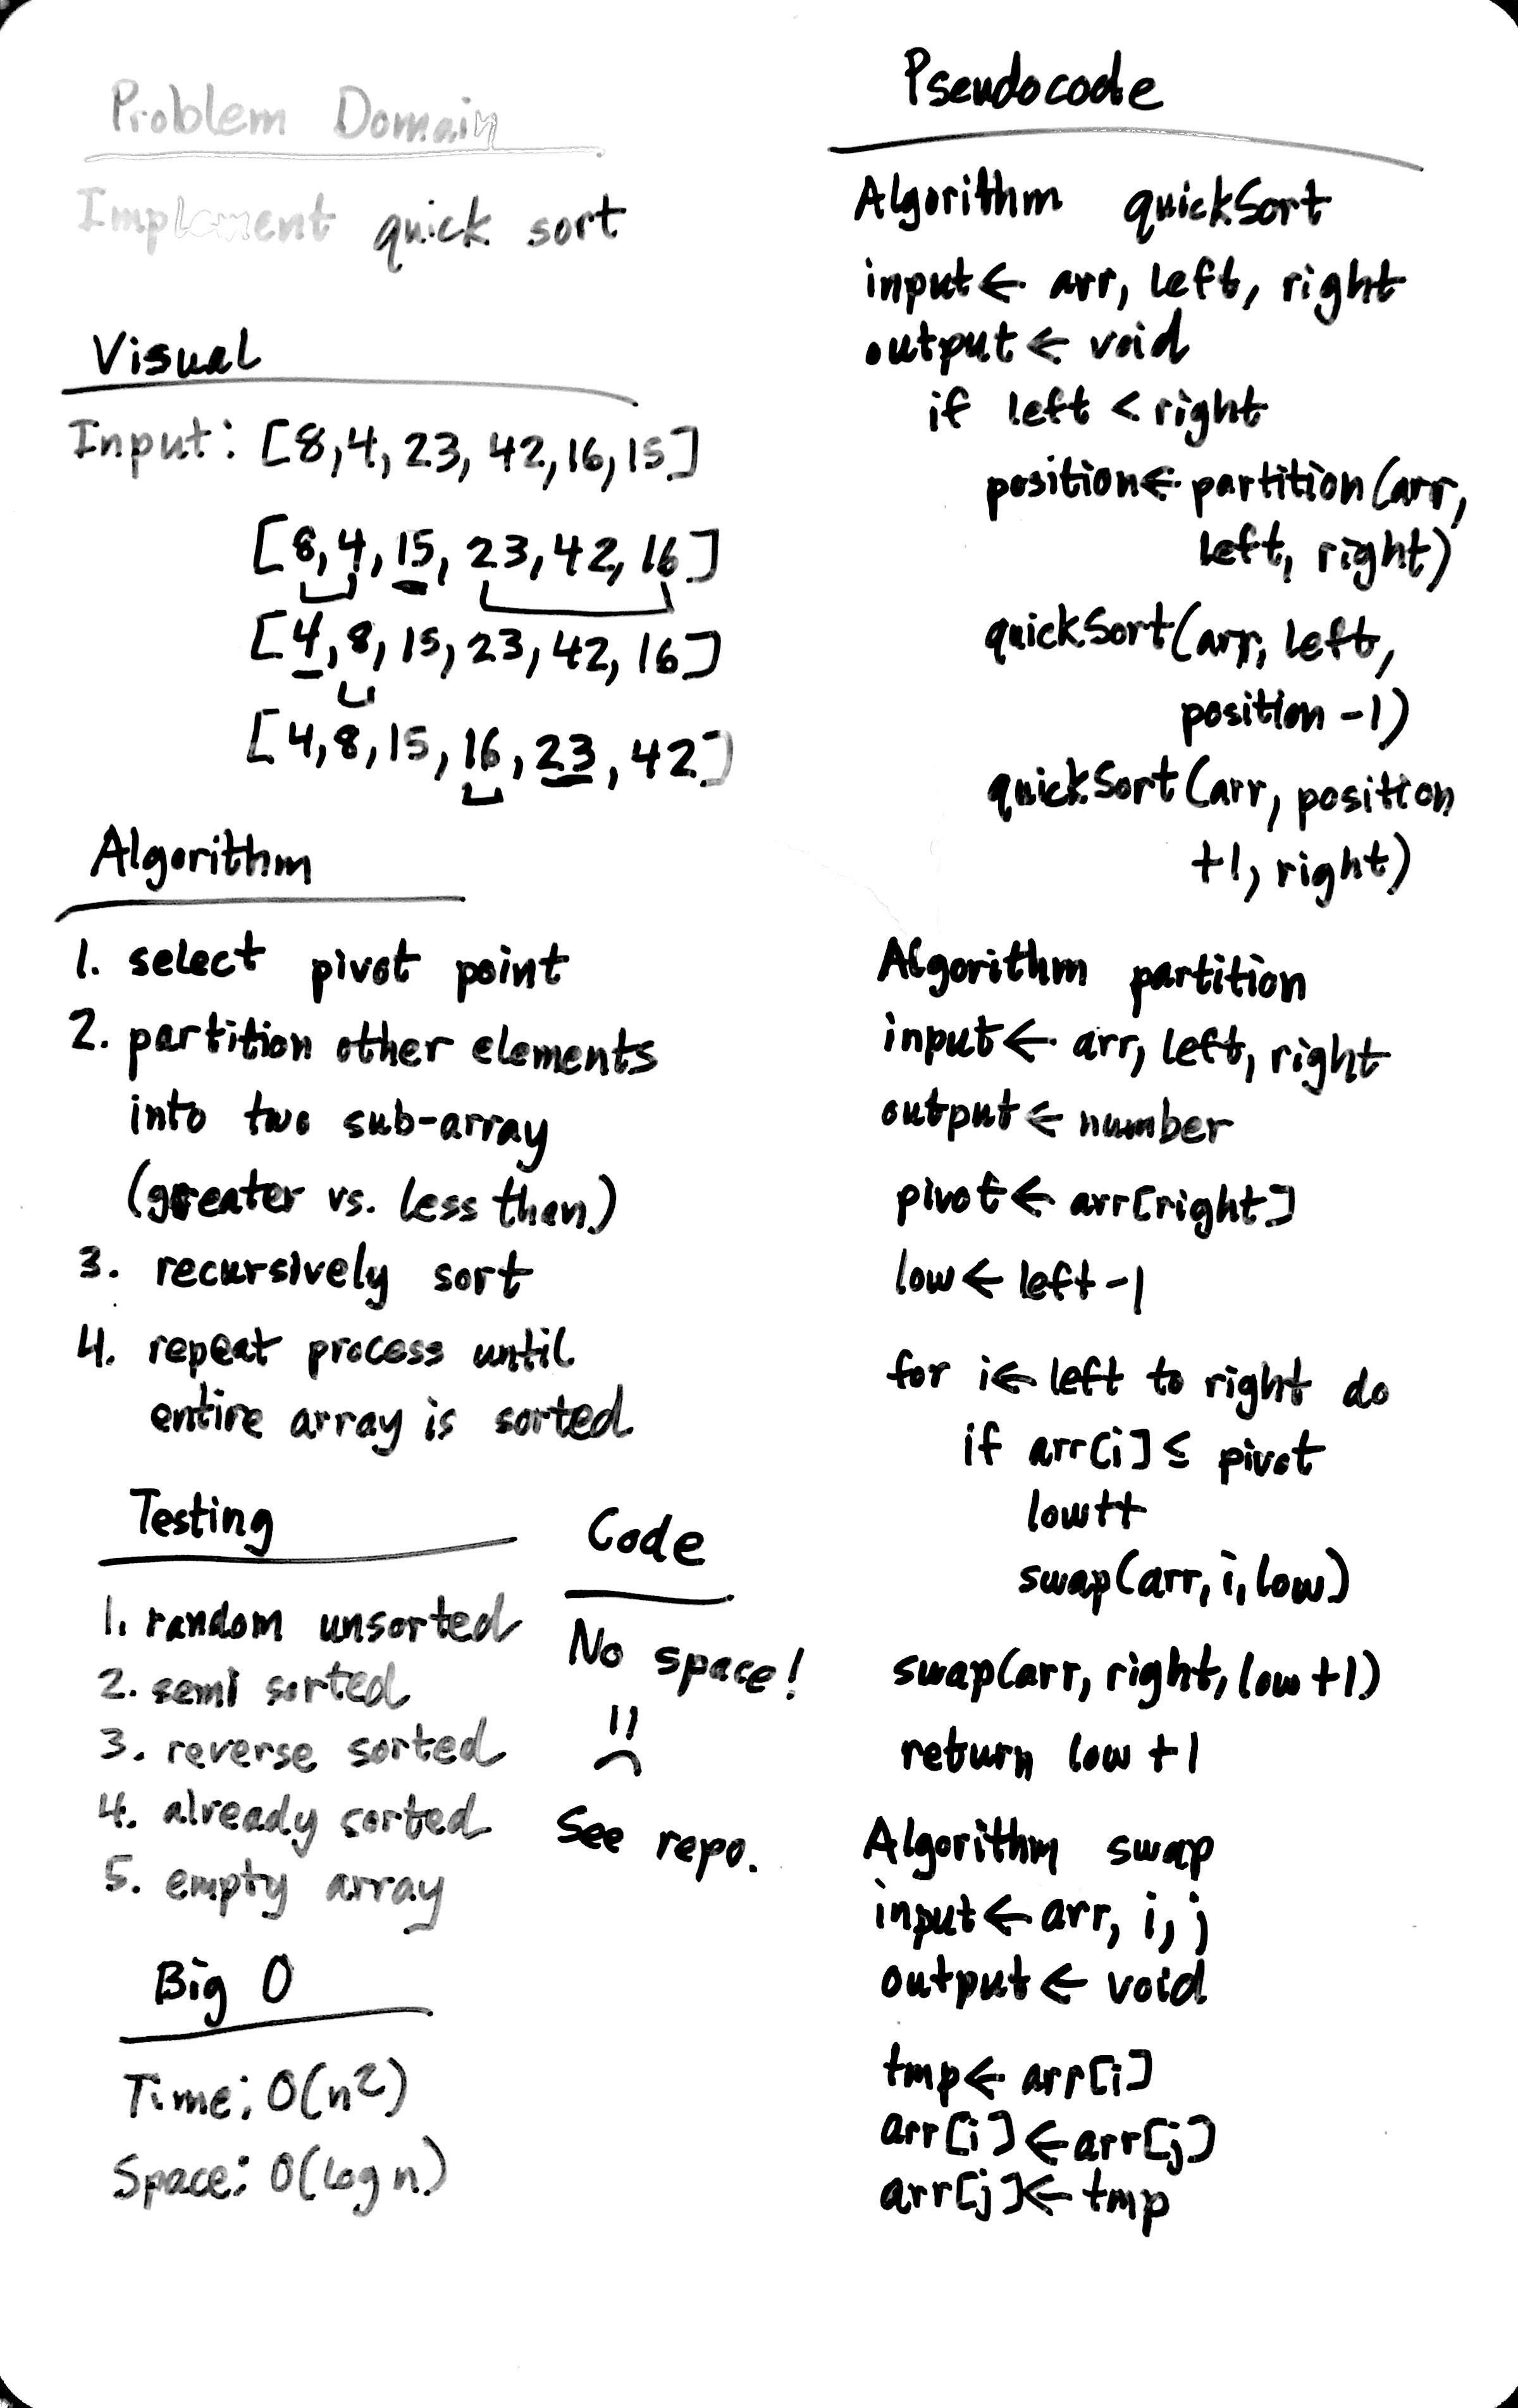 Problem Domain
Implement quick sort
Visual
Input: [8,4,23,42,16,15]
[8,4,15,23,42,16]
[4,8,15,23,42,16]
[4,8,15,16,23,42]
Algorithm
1. select pivot point
2. partition other elements
into two sub-array
(greater vs. less than)
3. recursively sort
4. repeat process until
entire array is sorted
Testing
1. random unsorted
2. semi sorted
3. reverse sorted
4. already sorted
5. empty array
Code
No space!
See repo.
Big O
Time: O(n²)
Space: O(log n)
Pseudocode
Algorithm quickSort
input ← arr, left, right
output ← void
if left < right
position ← partition(arr,
left, right)
quickSort(arr, left,
position -1)
quickSort(arr, position
+1, right)
Algorithm partition
input ← arr, left, right
output ← number
pivot ← arr[right]
low ← left -1
for i ← left to right do
if arr[i] ≤ pivot
low++
swap(arr, i, low)
swap(arr, right, low +1)
return low +1
Algorithm swap
input ← arr, i, j
output ← void
tmp ← arr[i]
arr[i] ← arr[j]
arr[j] ← tmp